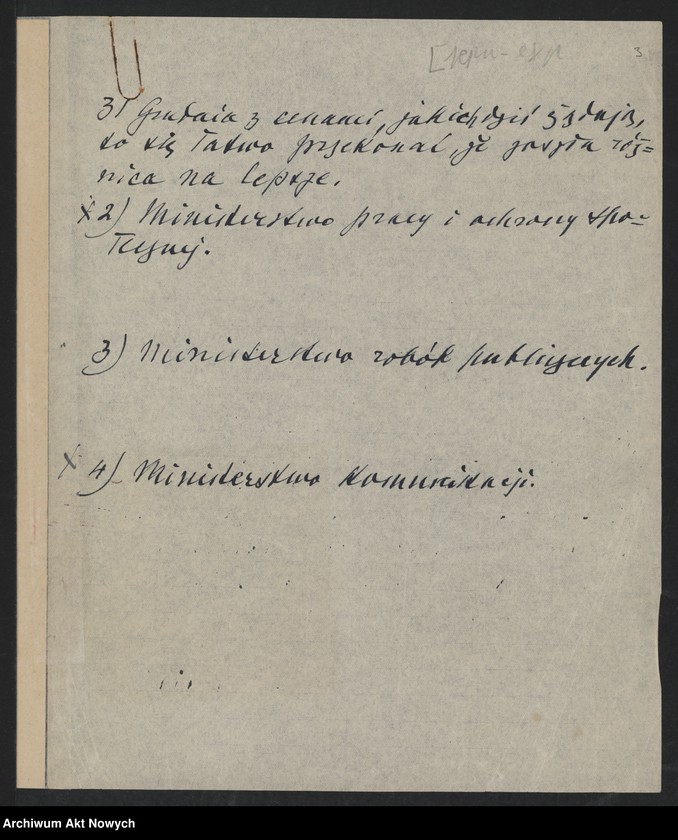 3
31 Grudnia z cenami, jakich dziś żądają,
to się łatwo przekonać, że zaszła róż=
nica na lepsze.
x 2) Ministerstwo pracy i ochrony spo-
łecznej.
3) Ministerstwo robót publicznych.
x 4) Ministerstwo Komunikacji.
Archiwum Akt Nowych